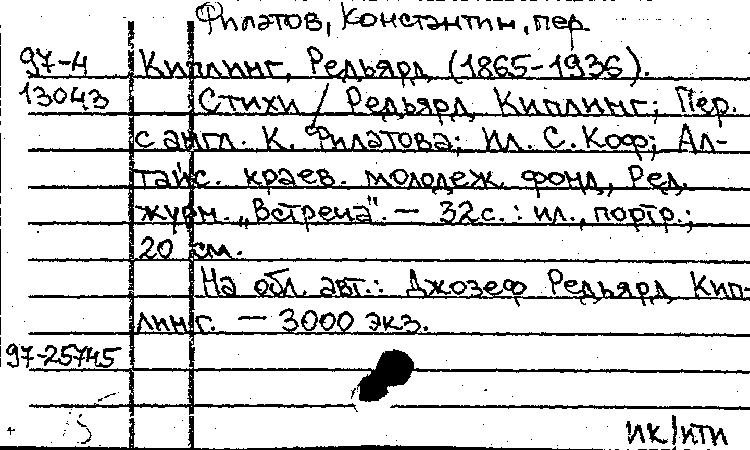 Филатов, Константин, пер.
97-4 Киплинг, Редьярд (1865-1936).
13043 Стихи / Редьярд Киплинг; Пер.
с англ. К. Филатова; Ил. С. Коф; Ал-
тайс. краев. молодеж. фонд, Ред.
журн. „Встреча". — 32 с. : ил., портр.;
20 см.
На обл. авт.: Джозеф Редьярд Кип-
линг. — 3000 экз.
97-25745
15
ик/кти